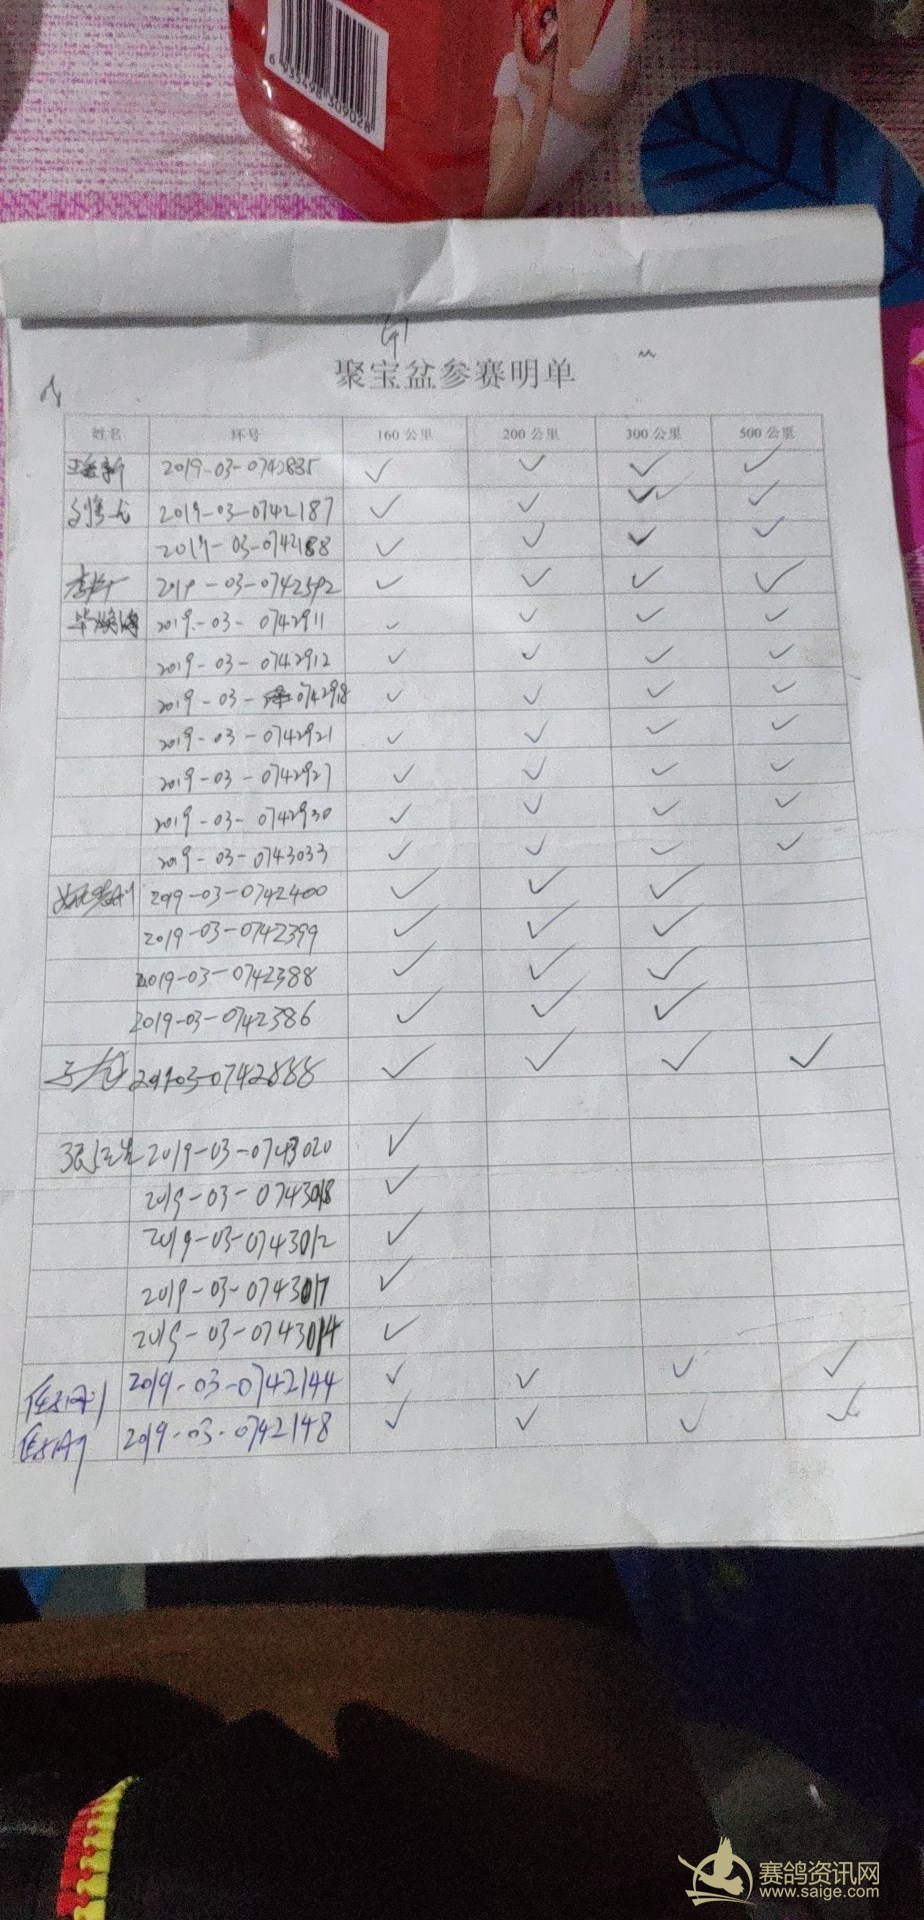 6 935498 309028
G1
聚宝盆参赛明单
姓名 环号 160公里 200公里 300公里 500公里
2019-03-0742835 ✓ ✓ ✓ ✓
2019-03-0742187 ✓ ✓ ✓✓ ✓
2019-03-0742188 ✓ ✓ ✓ ✓
2019-03-0742592 ✓ ✓ ✓ ✓
2019-03-0742911 ✓ ✓ ✓ ✓
2019-03-0742912 ✓ ✓ ✓ ✓
2019-03-0742918 ✓ ✓ ✓ ✓
2019-03-0742921 ✓ ✓ ✓ ✓
2019-03-0742927 ✓ ✓ ✓ ✓
2019-03-0742930 ✓ ✓ ✓ ✓
2019-03-0743033 ✓ ✓ ✓ ✓
2019-03-0742400 ✓ ✓ ✓
2019-03-0742399 ✓ ✓ ✓
2019-03-0742388 ✓ ✓ ✓
2019-03-0742386 ✓ ✓ ✓
2019-03-0742888 ✓ ✓ ✓ ✓
2019-03-0743020 ✓
2019-03-0743018 ✓
2019-03-0743012 ✓
2019-03-0743017 ✓
2019-03-0743014 ✓
2019-03-0742144 ✓ ✓ ✓ ✓
2019-03-0742148 ✓ ✓ ✓ ✓
赛鸽资讯网
www.saige.com